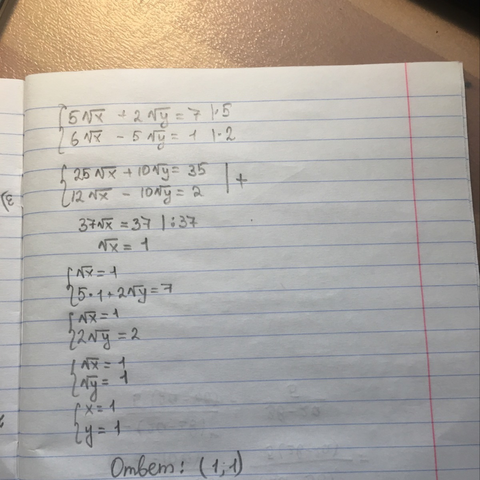 {5√x + 2√y = 7 |·5
{6√x - 5√y = 1 |·2
{25√x + 10√y = 35 | +
{12√x - 10√y = 2
37√x = 37 | :37
√x = 1
{√x = 1
{5·1 + 2√y = 7
{√x = 1
{2√y = 2
{√x = 1
{√y = 1
{x = 1
{y = 1
Ответ: (1;1)